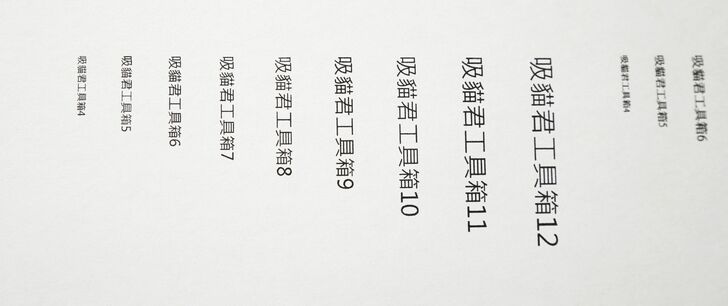 吸貓君工具箱6
吸貓君工具箱5
吸貓君工具箱4
吸貓君工具箱12
吸貓君工具箱11
吸貓君工具箱10
吸貓君工具箱9
吸貓君工具箱8
吸貓君工具箱7
吸貓君工具箱6
吸貓君工具箱5
吸貓君工具箱4